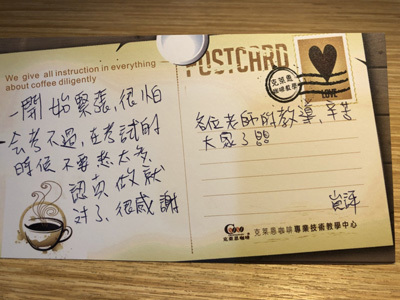 POSTCARD
We give all instruction in everything
about coffee diligently
一開始緊張,很怕
會考不過,在考試的
時候不要想太多,
認真做就
對了,很感謝
克萊恩
咖啡教學
LOVE
各位老師的教導,辛苦
大家了!!!
克萊恩咖啡
克萊恩咖啡專業技術教學中心